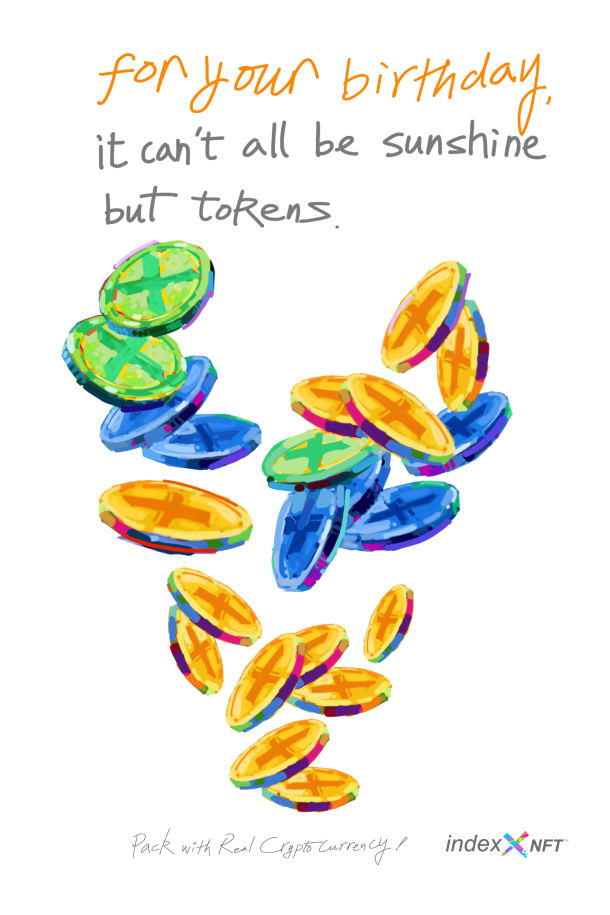 for your birthday,
it can't all be sunshine
but tokens.
Pack with Real Cryptocurrency!
indexX.NFT™